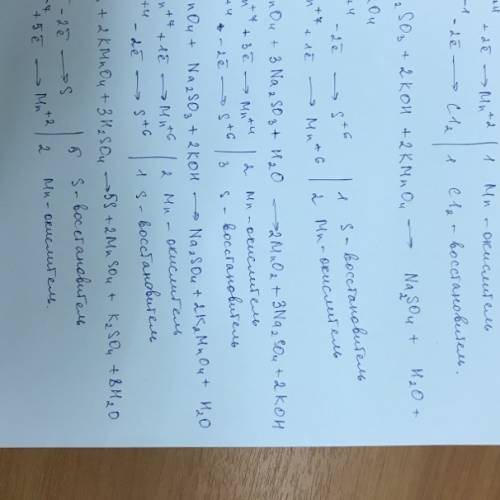 +4 + 2ē → Mn+2 | 1 Mn-окислитель
-1 - 2ē → Cl2 | 1 Cl2-восстановитель.
2SO3 + 2KOH + 2KMnO4 → Na2SO4 + H2O +
nO4
+4 - 2ē → S+6 | 1 S-восстановитель
n+7 + 1ē → Mn+6 | 2 Mn-окислитель
nO4 + 3Na2SO3 + H2O → 2MnO2 + 3Na2SO4 + 2KOH
n+7 + 3ē → Mn+4 | 2 Mn-окислитель
+4 - 2ē → S+6 | 3 S-восстановитель
nO4 + Na2SO3 + 2KOH → Na2SO4 + 2K2MnO4 + H2O
n+7 + 1ē → Mn+6 | 2 Mn-окислитель
+4 - 2ē → S+6 | 1 S-восстановитель
+ 2KMnO4 + 3H2SO4 → 5S + 2MnSO4 + K2SO4 + 8H2O
- 2ē → S | 5 S-восстановитель
+7 + 5ē → Mn+2 | 2 Mn-окислитель.